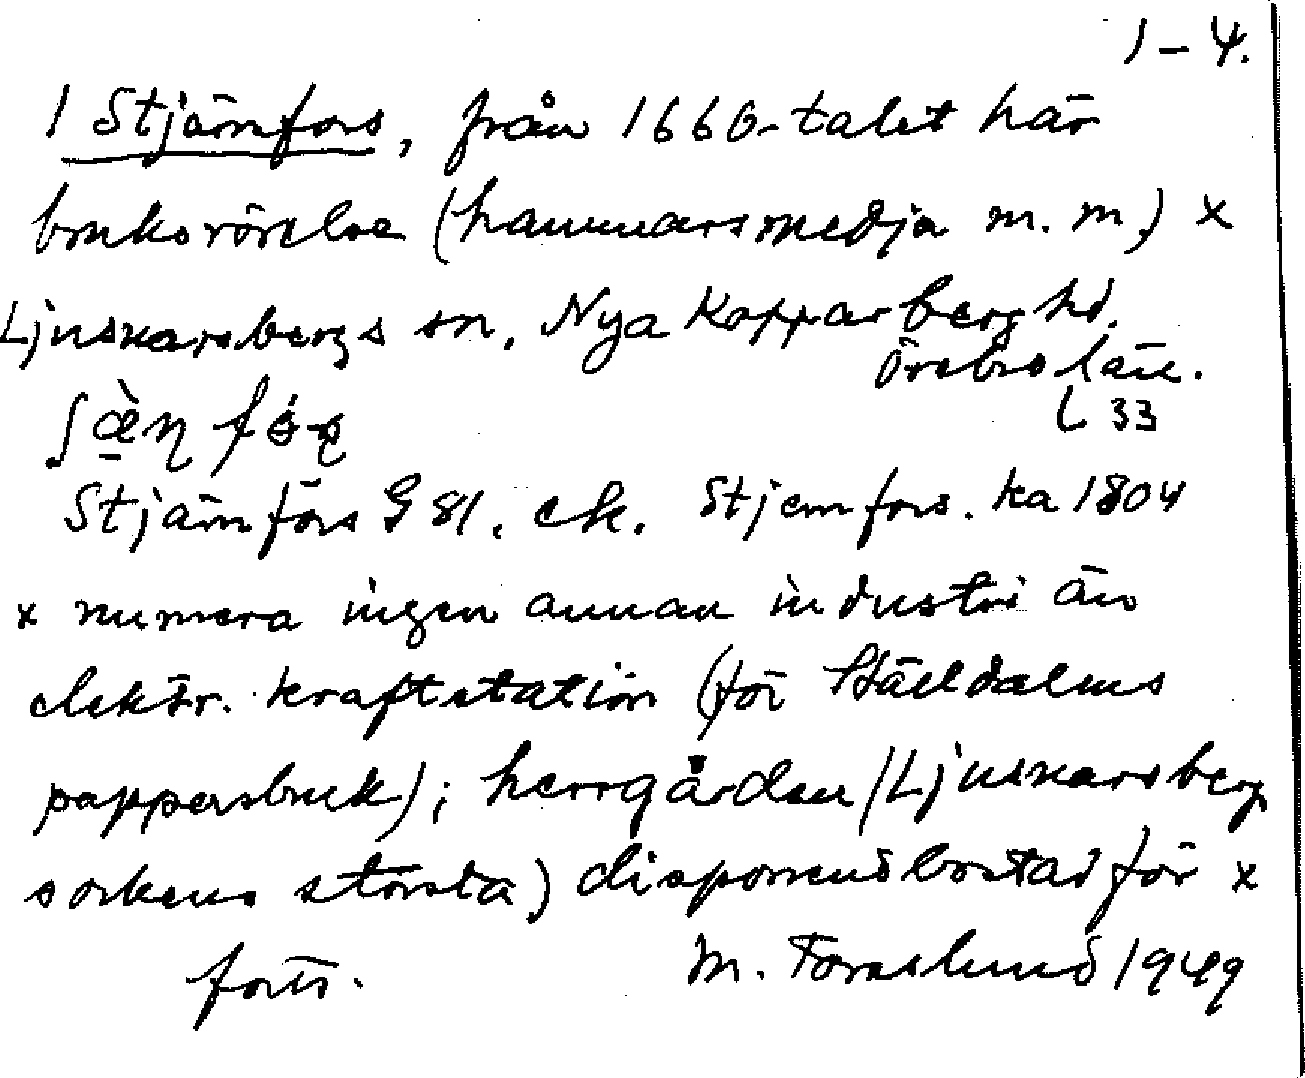 1-4.
1 Stjärnfors, från 1660-talet här
bruksrörelse (hammarsmedja m.m.) x
Ljusnarsbergs sn, Nya Kopparberg hd.
Örebro län.
L 33
Stjärnfors G 81, ek. Stjernfors. ka 1804
x numera ingen annan industri än
elektr. kraftstation (för Ställdalens
pappersbruk); herrgården (Ljusnarsberg
sockens största) disponentbostad för x
forts. M. Forslund 1949